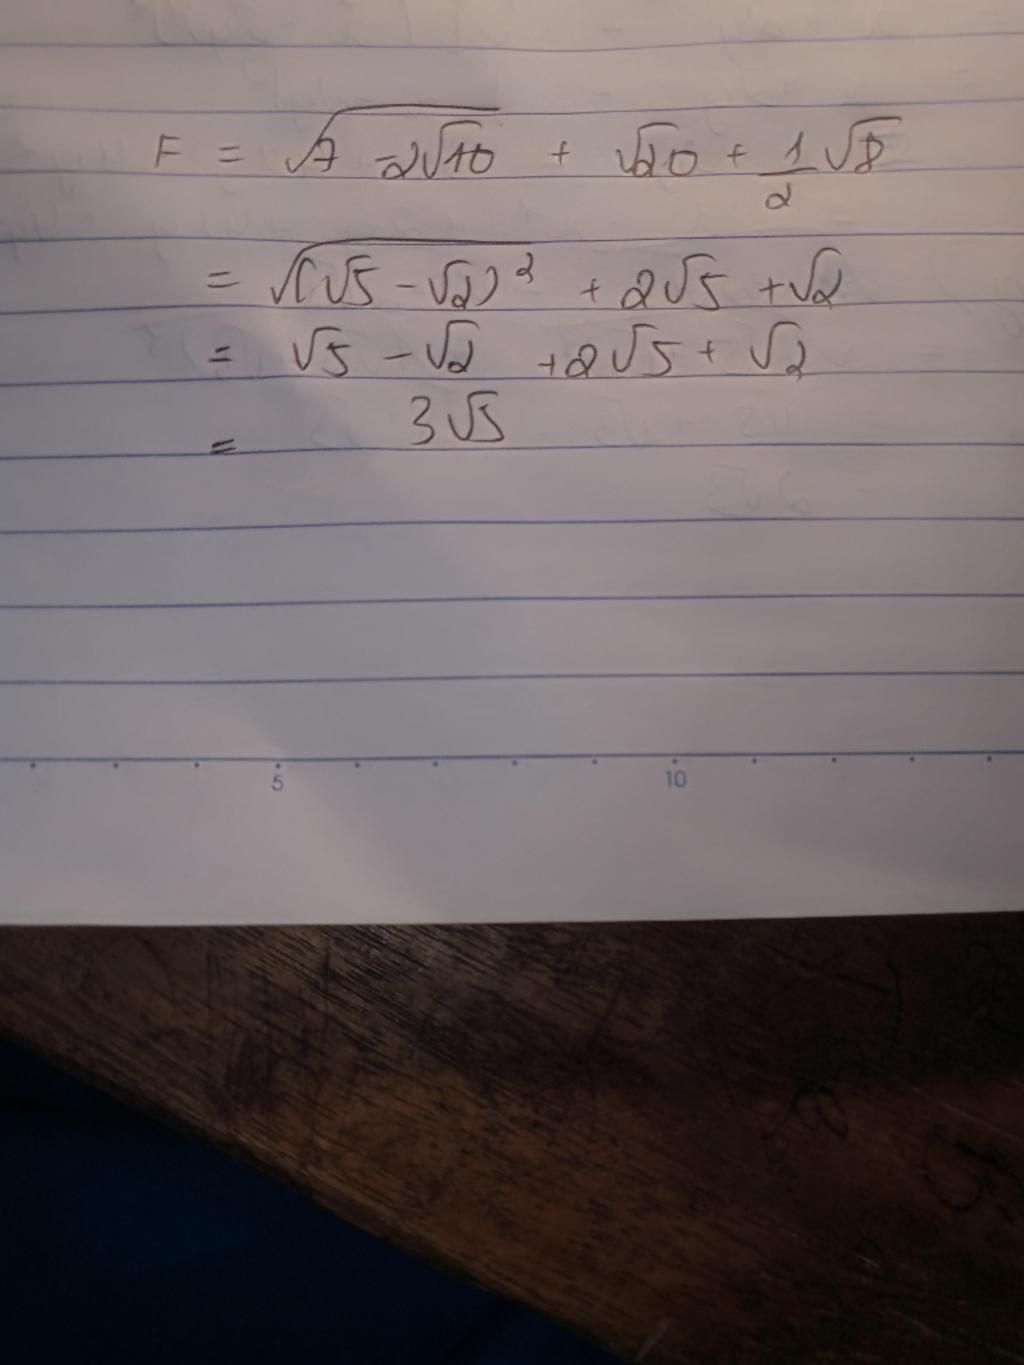 F = √(7 - 2√10) + √20 + 1/2 √8
= √((√5 - √2)²) + 2√5 + √2
= √5 - √2 + 2√5 + √2
= 3√5
5 10